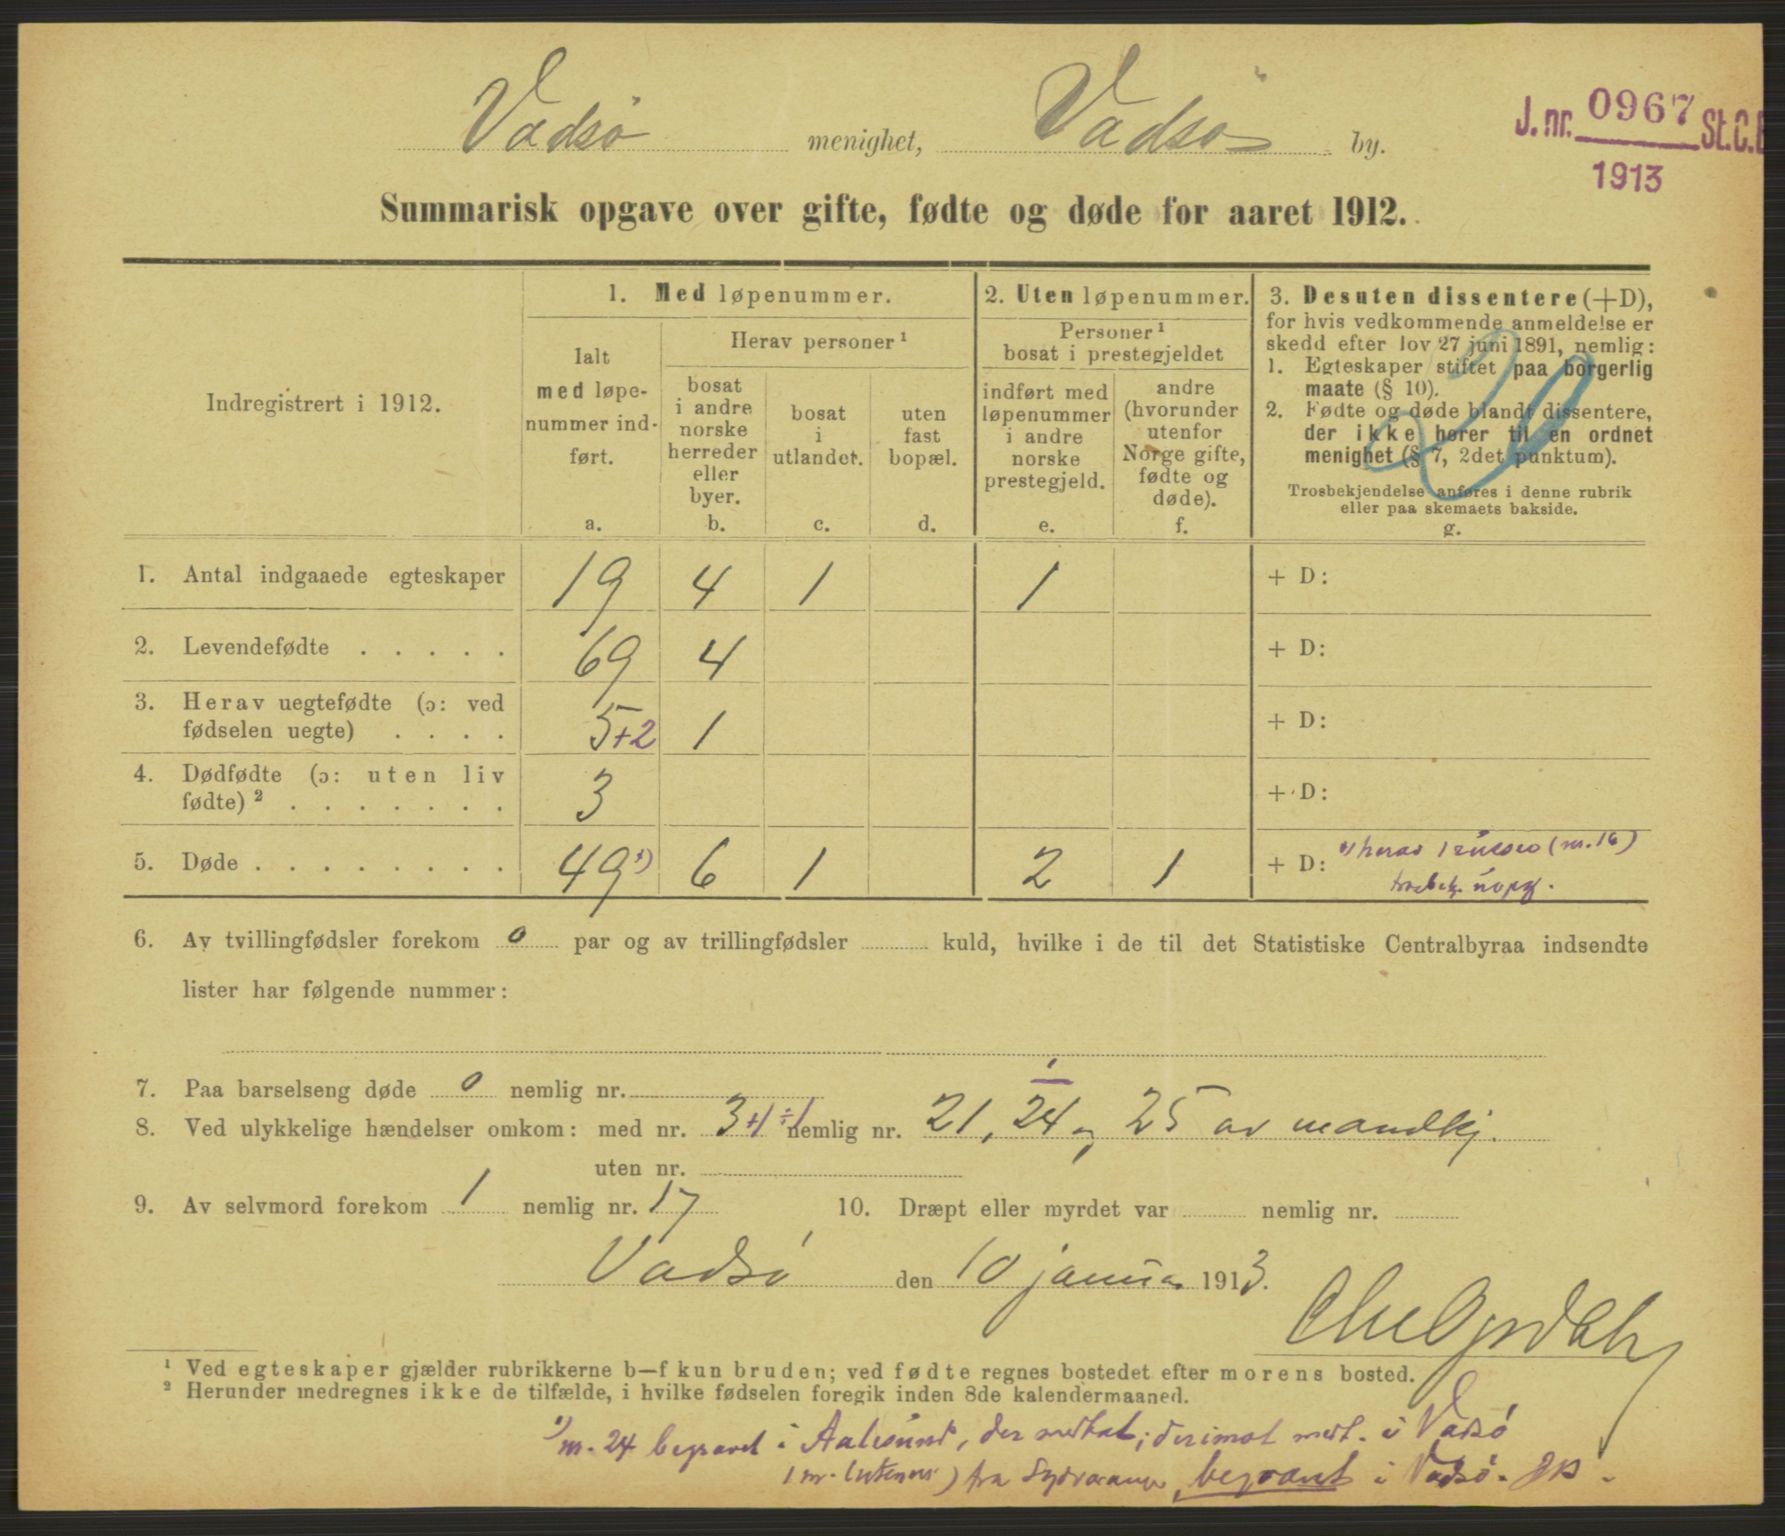 Vadsø menighet, Vadsø by.
J. nr. 0967 St. C. B
1913
Summarisk opgave over gifte, fødte og døde for aaret 1912.
Indregistrert i 1912.
1. Med løpenummer.
Ialt
med løpe-
nummer ind-
ført.
a.
Herav personer ¹
bosat
i andre
norske
herreder
eller
byer.
b.
bosat
i
utlandet.
c.
uten
fast
bopæl.
d.
2. Uten løpenummer.
Personer ¹
bosat i prestegjeldet
indført med
løpenummer
i andre
norske
prestegjeld.
e.
andre
(hvorunder
utenfor
Norge gifte,
fødte og
døde).
f.
3. Desuten dissentere (+D),
for hvis vedkommende anmeldelse er
skedd efter lov 27 juni 1891, nemlig:
1. Egteskaper stiftet paa borgerlig
maate (§ 10).
2. Fødte og døde blandt dissentere,
der ikke hører til en ordnet
menighet (§ 7, 2det punktum).
Trosbekjendelse anføres i denne rubrik
eller paa skemaets bakside.
g.
20
1. Antal indgaaede egteskaper 19 4 1 1 + D:
2. Levendefødte . . . . . 69 4 + D:
3. Herav uegtefødte (ɔ: ved
fødselen uegte) . . . . 5+2 1 + D:
4. Dødfødte (ɔ: uten liv
fødte) ² . . . . . . . 3 + D:
5. Døde . . . . . . . . 49 ¹) 6 1 2 1 + D: herav 1 (nr. 16)
6. Av tvillingfødsler forekom 0 par og av trillingfødsler kuld, hvilke i de til det Statistiske Centralbyraa indsendte
lister har følgende nummer:
7. Paa barselseng døde 0 nemlig nr.
8. Ved ulykkelige hændelser omkom: med nr. 3+1÷1 nemlig nr. 21, 24 og 25 av mandkj.
uten nr.
9. Av selvmord forekom 1 nemlig nr. 17 10. Dræpt eller myrdet var nemlig nr.
Vadsø den 10 januar 1913.
¹ Ved egteskaper gjælder rubrikkerne b—f kun bruden; ved fødte regnes bostedet efter morens bosted.
² Herunder medregnes ikke de tilfælde, i hvilke fødselen foregik inden 8de kalendermaaned.
¹) nr. 24 begravet i Aalesund, der medtat; derimot medt. i Vadsø
1 m. fra Sydvaranger, begravet i Vadsø.